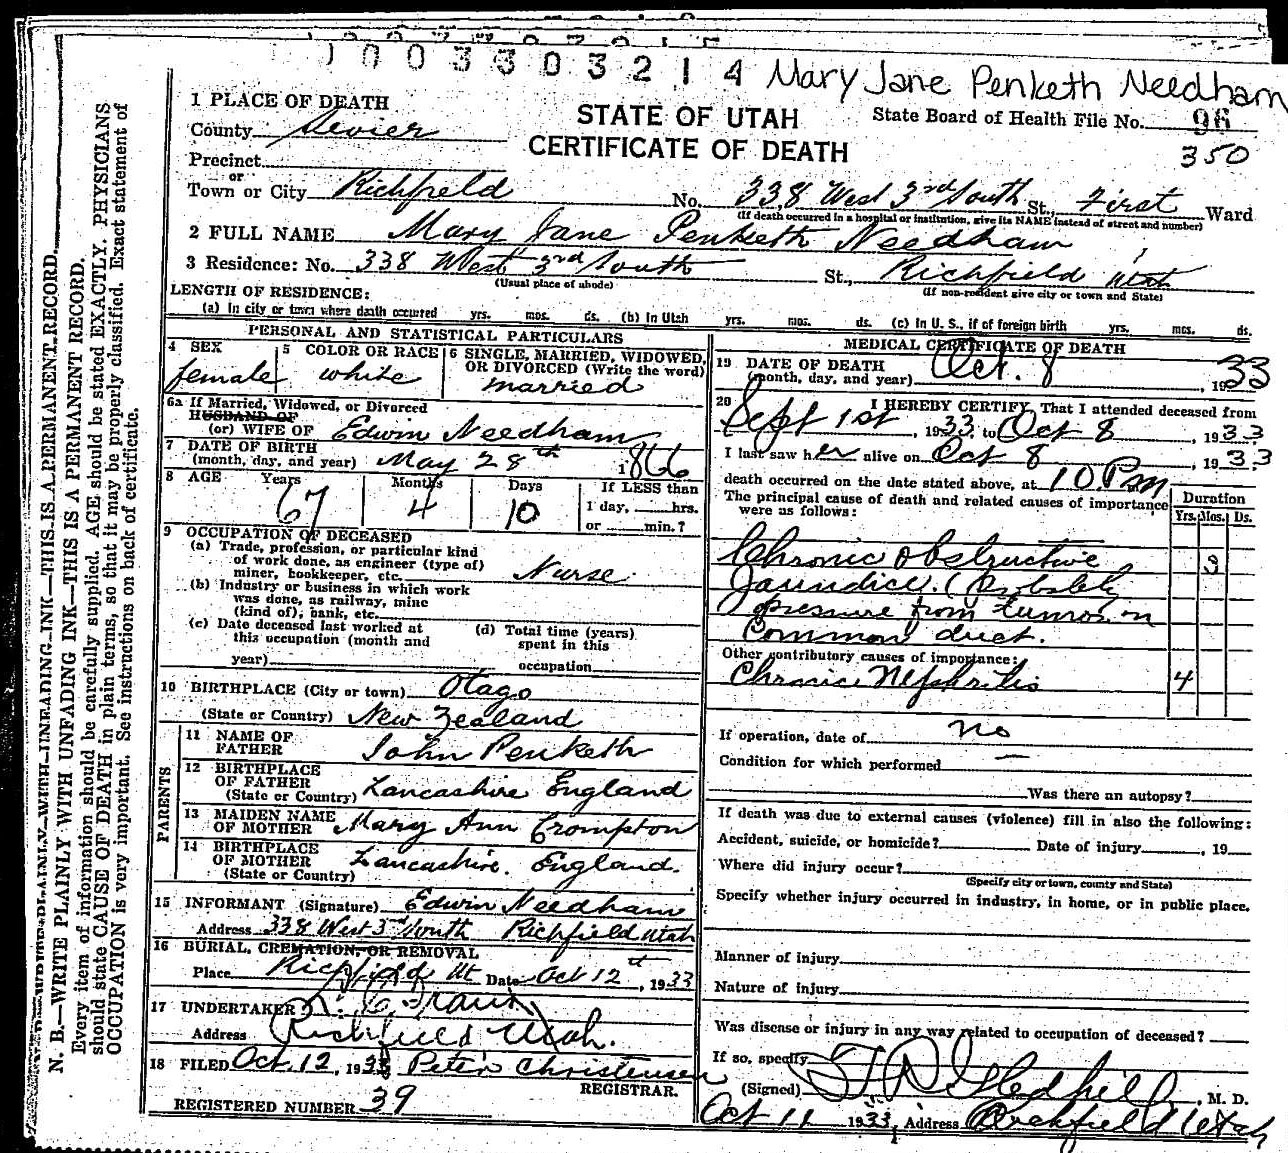 1003303214 Mary Jane Penketh Needham
1 PLACE OF DEATH
STATE OF UTAH
State Board of Health File No. 96
County Sevier
CERTIFICATE OF DEATH
350
Precinct
or
Town or City Richfield No. 338 West 3rd South St., First Ward
(If death occurred in a hospital or institution, give its NAME instead of street and number)
2 FULL NAME Mary Jane Penketh Needham
3 Residence: No. 338 West 3rd South St., Richfield Utah
(Usual place of abode) (If non-resident give city or town and State)
LENGTH OF RESIDENCE:
(a) In city or town where death occurred yrs. mos. ds. (b) In Utah yrs. mos. ds. (c) In U. S., if of foreign birth yrs. mos. ds.
PERSONAL AND STATISTICAL PARTICULARS
4 SEX 5 COLOR OR RACE 6 SINGLE, MARRIED, WIDOWED,
OR DIVORCED (Write the word)
female white married
6a If Married, Widowed, or Divorced
HUSBAND OF
(or) WIFE OF Edwin Needham
7 DATE OF BIRTH
(month, day, and year) May 28th 1866
8 AGE Years Months Days If LESS than
67 4 10 1 day, hrs.
or min.?
9 OCCUPATION OF DECEASED
(a) Trade, profession, or particular kind
of work done, as engineer (type of)
miner, bookkeeper, etc. Nurse
(b) Industry or business in which work
was done, as railway, mine
(kind of), bank, etc.
(c) Date deceased last worked at (d) Total time (years)
this occupation (month and spent in this
year) occupation
10 BIRTHPLACE (City or town) Otago
(State or Country) New Zealand
PARENTS
11 NAME OF
FATHER John Penketh
12 BIRTHPLACE
OF FATHER
(State or Country) Lancashire England
13 MAIDEN NAME
OF MOTHER Mary Ann Crompton
14 BIRTHPLACE
OF MOTHER
(State or Country) Lancashire. England.
15 INFORMANT (Signature) Edwin Needham
Address 338 West 3rd South Richfield Utah
16 BURIAL, CREMATION, OR REMOVAL
Place Richfield Ut Date Oct 12th, 1933
17 UNDERTAKER
Address Richfield Utah.
18 FILED Oct. 12, 1933 Peter Christensen
REGISTRAR.
REGISTERED NUMBER 39
MEDICAL CERTIFICATE OF DEATH
19 DATE OF DEATH
(month, day, and year) Oct. 8, 1933
20 I HEREBY CERTIFY, That I attended deceased from
Sept 1st, 1933, to Oct 8, 1933
I last saw her alive on Oct 8, 1933
death occurred on the date stated above, at 10 P.m
The principal cause of death and related causes of importance
were as follows:
Duration
Yrs. Mos. Ds.
Chronic obstructive 3
Jaundice. (Probably
pressure from tumor on
Common duct.
Other contributory causes of importance:
Chronic Nephritis 4
If operation, date of no
Condition for which performed —
Was there an autopsy?
If death was due to external causes (violence) fill in also the following:
Accident, suicide, or homicide? Date of injury , 19
Where did injury occur?
(Specify city or town, county and State)
Specify whether injury occurred in industry, in home, or in public place.
Manner of injury
Nature of injury
Was disease or injury in any way related to occupation of deceased?
If so, specify
(Signed) Gledhill, M. D.
Oct 11 1933, Address Richfield Utah
N. B.—WRITE PLAINLY WITH UNFADING INK—THIS IS A PERMANENT RECORD.
Every item of information should be carefully supplied. AGE should be stated EXACTLY. PHYSICIANS
should state CAUSE OF DEATH in plain terms, so that it may be properly classified. Exact statement of
OCCUPATION is very important. See instructions on back of certificate.